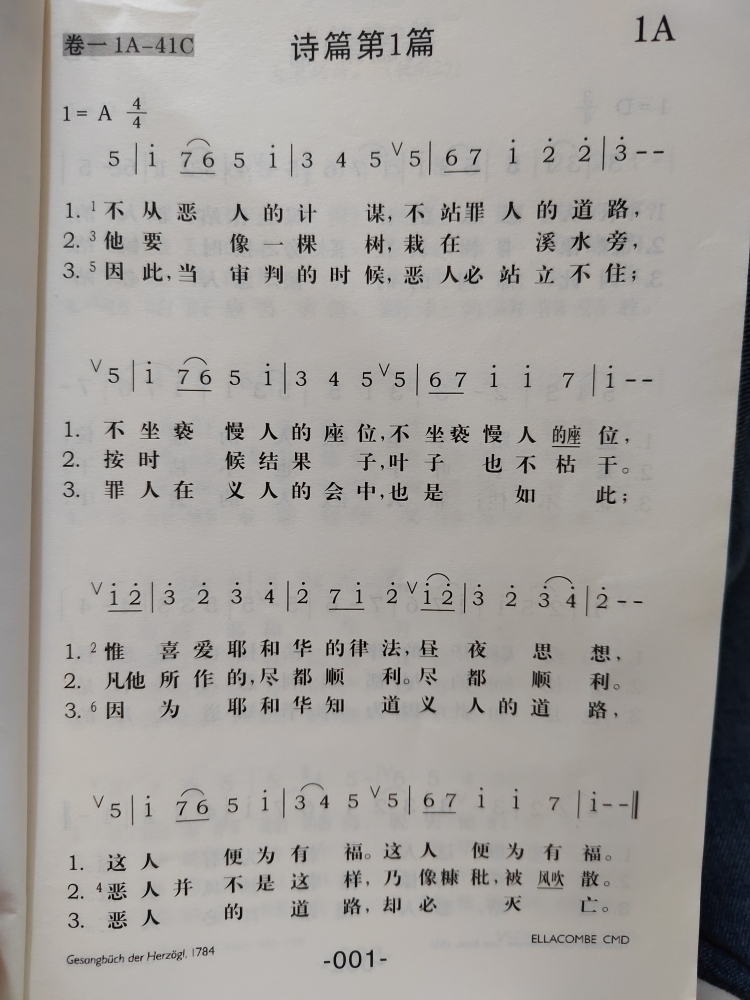 卷一 1A-41C
诗篇第1篇
1A
1= A 4/4
5 | i 76 5 i | 3 4 5 ∨ 5 | 67 i 2̇ 2̇ | 3̇ - -
1. ¹不从恶 人的计 谋,不站罪人的道路,
2. ³他要 像一棵 树,栽在 溪水旁,
3. ⁵因此,当 审判的时候,恶人必站立不住;
∨ 5 | i 76 5 i | 3 4 5 ∨ 5 | 67 i i 7 | i - -
1. 不坐亵 慢人的座位,不坐亵慢人的座位,
2. 按时 候结果 子,叶子 也不枯干。
3. 罪人在 义人的会中,也是 如 此;
∨ i2̇ | 3̇ 2̇ 3̇ 4̇ | 2̇ 7i 2̇ ∨ i2̇ | 3̇ 2̇ 3̇4̇ | 2̇ - -
1. ²惟 喜爱耶和华的律法,昼 夜 思 想,
2. 凡他所作的,尽都顺 利。尽 都 顺 利。
3. ⁶因 为 耶和华知 道义 人的道 路,
∨ 5 | i 76 5 i | 34 5 ∨ 5 | 67 i i 7 | i - - ‖
1. 这人 便为有 福。这人 便为有 福。
2. ⁴恶人并 不是这 样,乃像糠秕,被风吹散。
3. 恶人 的 道 路,却必 灭 亡。
Gesongbüch der Herzögl, 1784
-001-
ELLACOMBE CMD